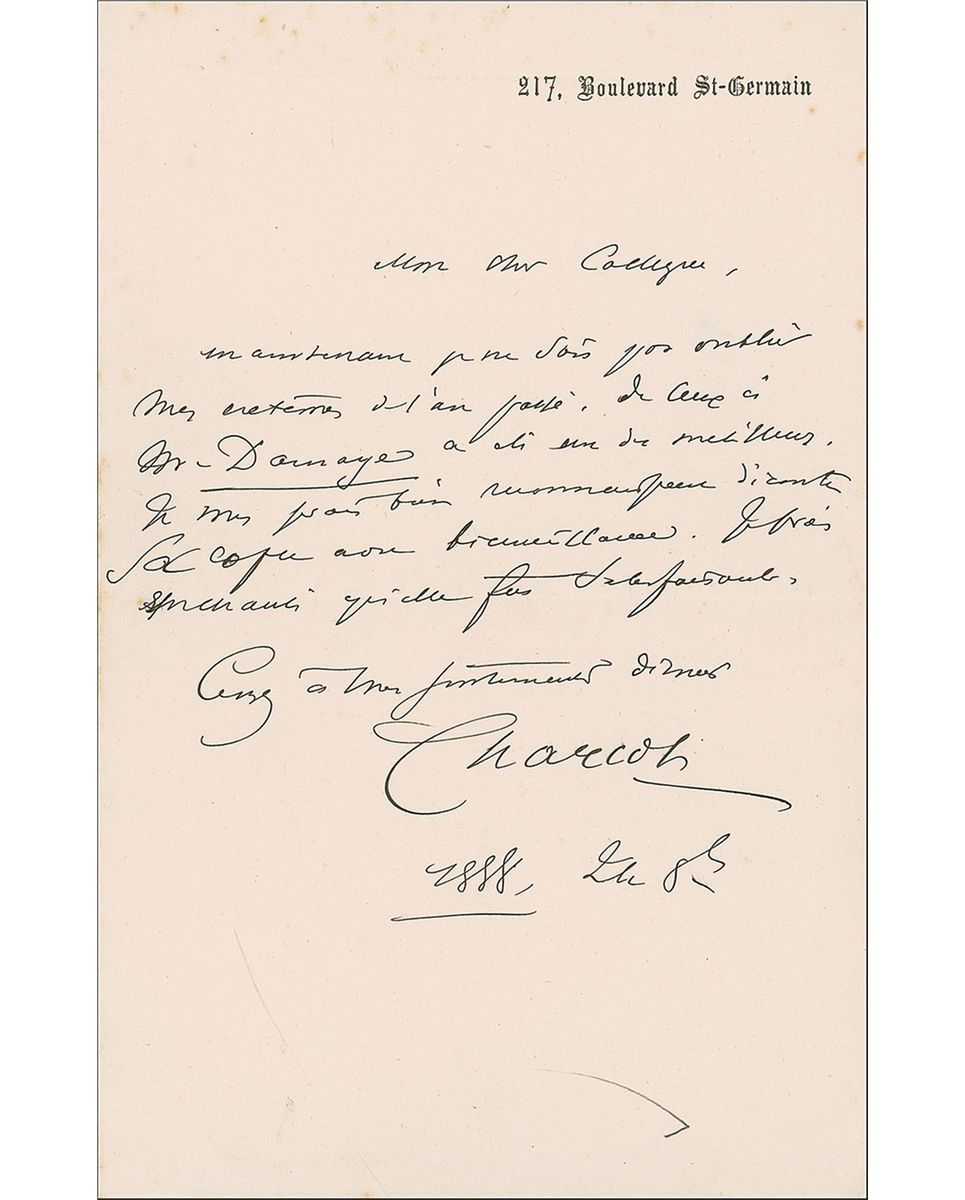 217, Boulevard St-Germain
Mon cher Collègue,
maintenant je ne dois pas oublier
mes externes de l'an passé. de ceux ci
Mr Damaye a été un des meilleurs.
Je vous serais bien reconnaissant d'écouter
Sa copie avec bienveillance. Je serais
enchanté qu'elle fut satisfaisante.
Croyez à mes sentiments
Charcot
1888, 24 8b